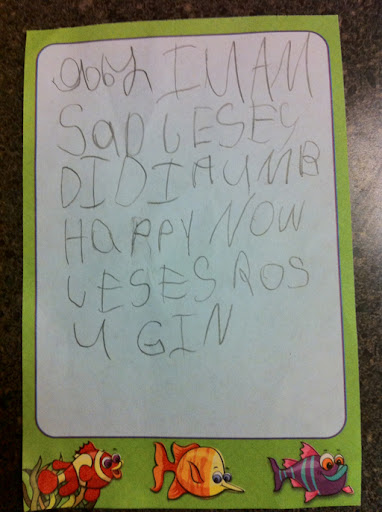 abby I UAM
SaD LESEY
DIDI AUMB
HaPPY NOW
LESES ROS
U GIN